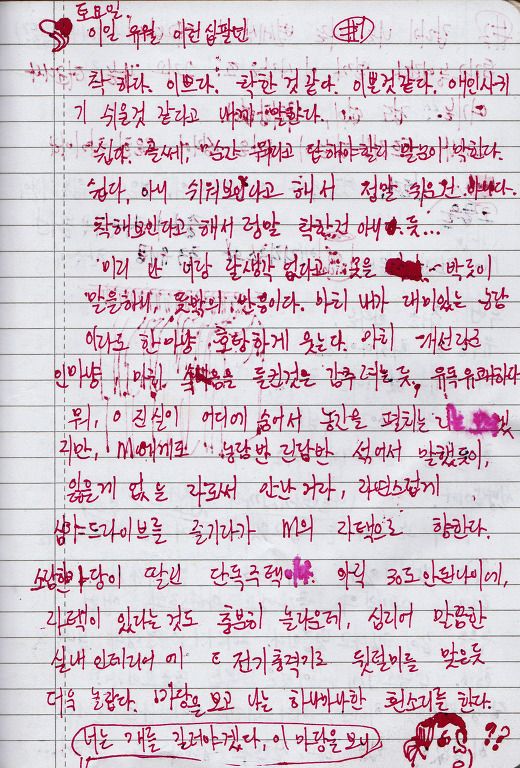 토요일,
이일 유월 이천십팔년 #1
착하다. 이쁘다. 착한것 같다. 이쁜것같다, 애인사귀
기 쉬울것 같다고 내게 말한다.
쉽다. 글쎄, 순간 뭐라고 답해야할지 말문이 막힌다.
쉽다, 아니 쉬워보인다고 해서 정말 쉬운건 아니다.
착해보인다고 해서 정말 착한건 아니듯...
"미리 반 너랑 잘생각 없다고" 못을 박듯이
말을하니, 뜻밖의 반응이다. 마치 내가 재미있는 농담
이라도 한마냥 호탕하게 웃는다. 마치 개선장군
인마냥 마치 속마음을 들킨것을 감추려는듯, 유독유쾌하다
뭐, 이 진실이 어디에 숨어서 농간을 펼치는
지만, M에게도 농담반 진담반 섞어서 말했듯이,
잃을게 없는 나로써 만난거라, 자연스럽게
심야드라이브를 즐기다가 M의 자택으로 향한다.
소담한마당이 딸린 단독주택이다. 아직 30도 안된나이에,
자택이 있다는것도 충분히 놀라운데, 심지어 말끔한
실내인테리어에 또 전기충격기로 뒷덜미를 맞은듯
더욱 놀랍다. 마당을 보고 나는 하나마나한 흰소리를 한다.
너는 개를 길러야겠다, 이 마당을 보니 ??